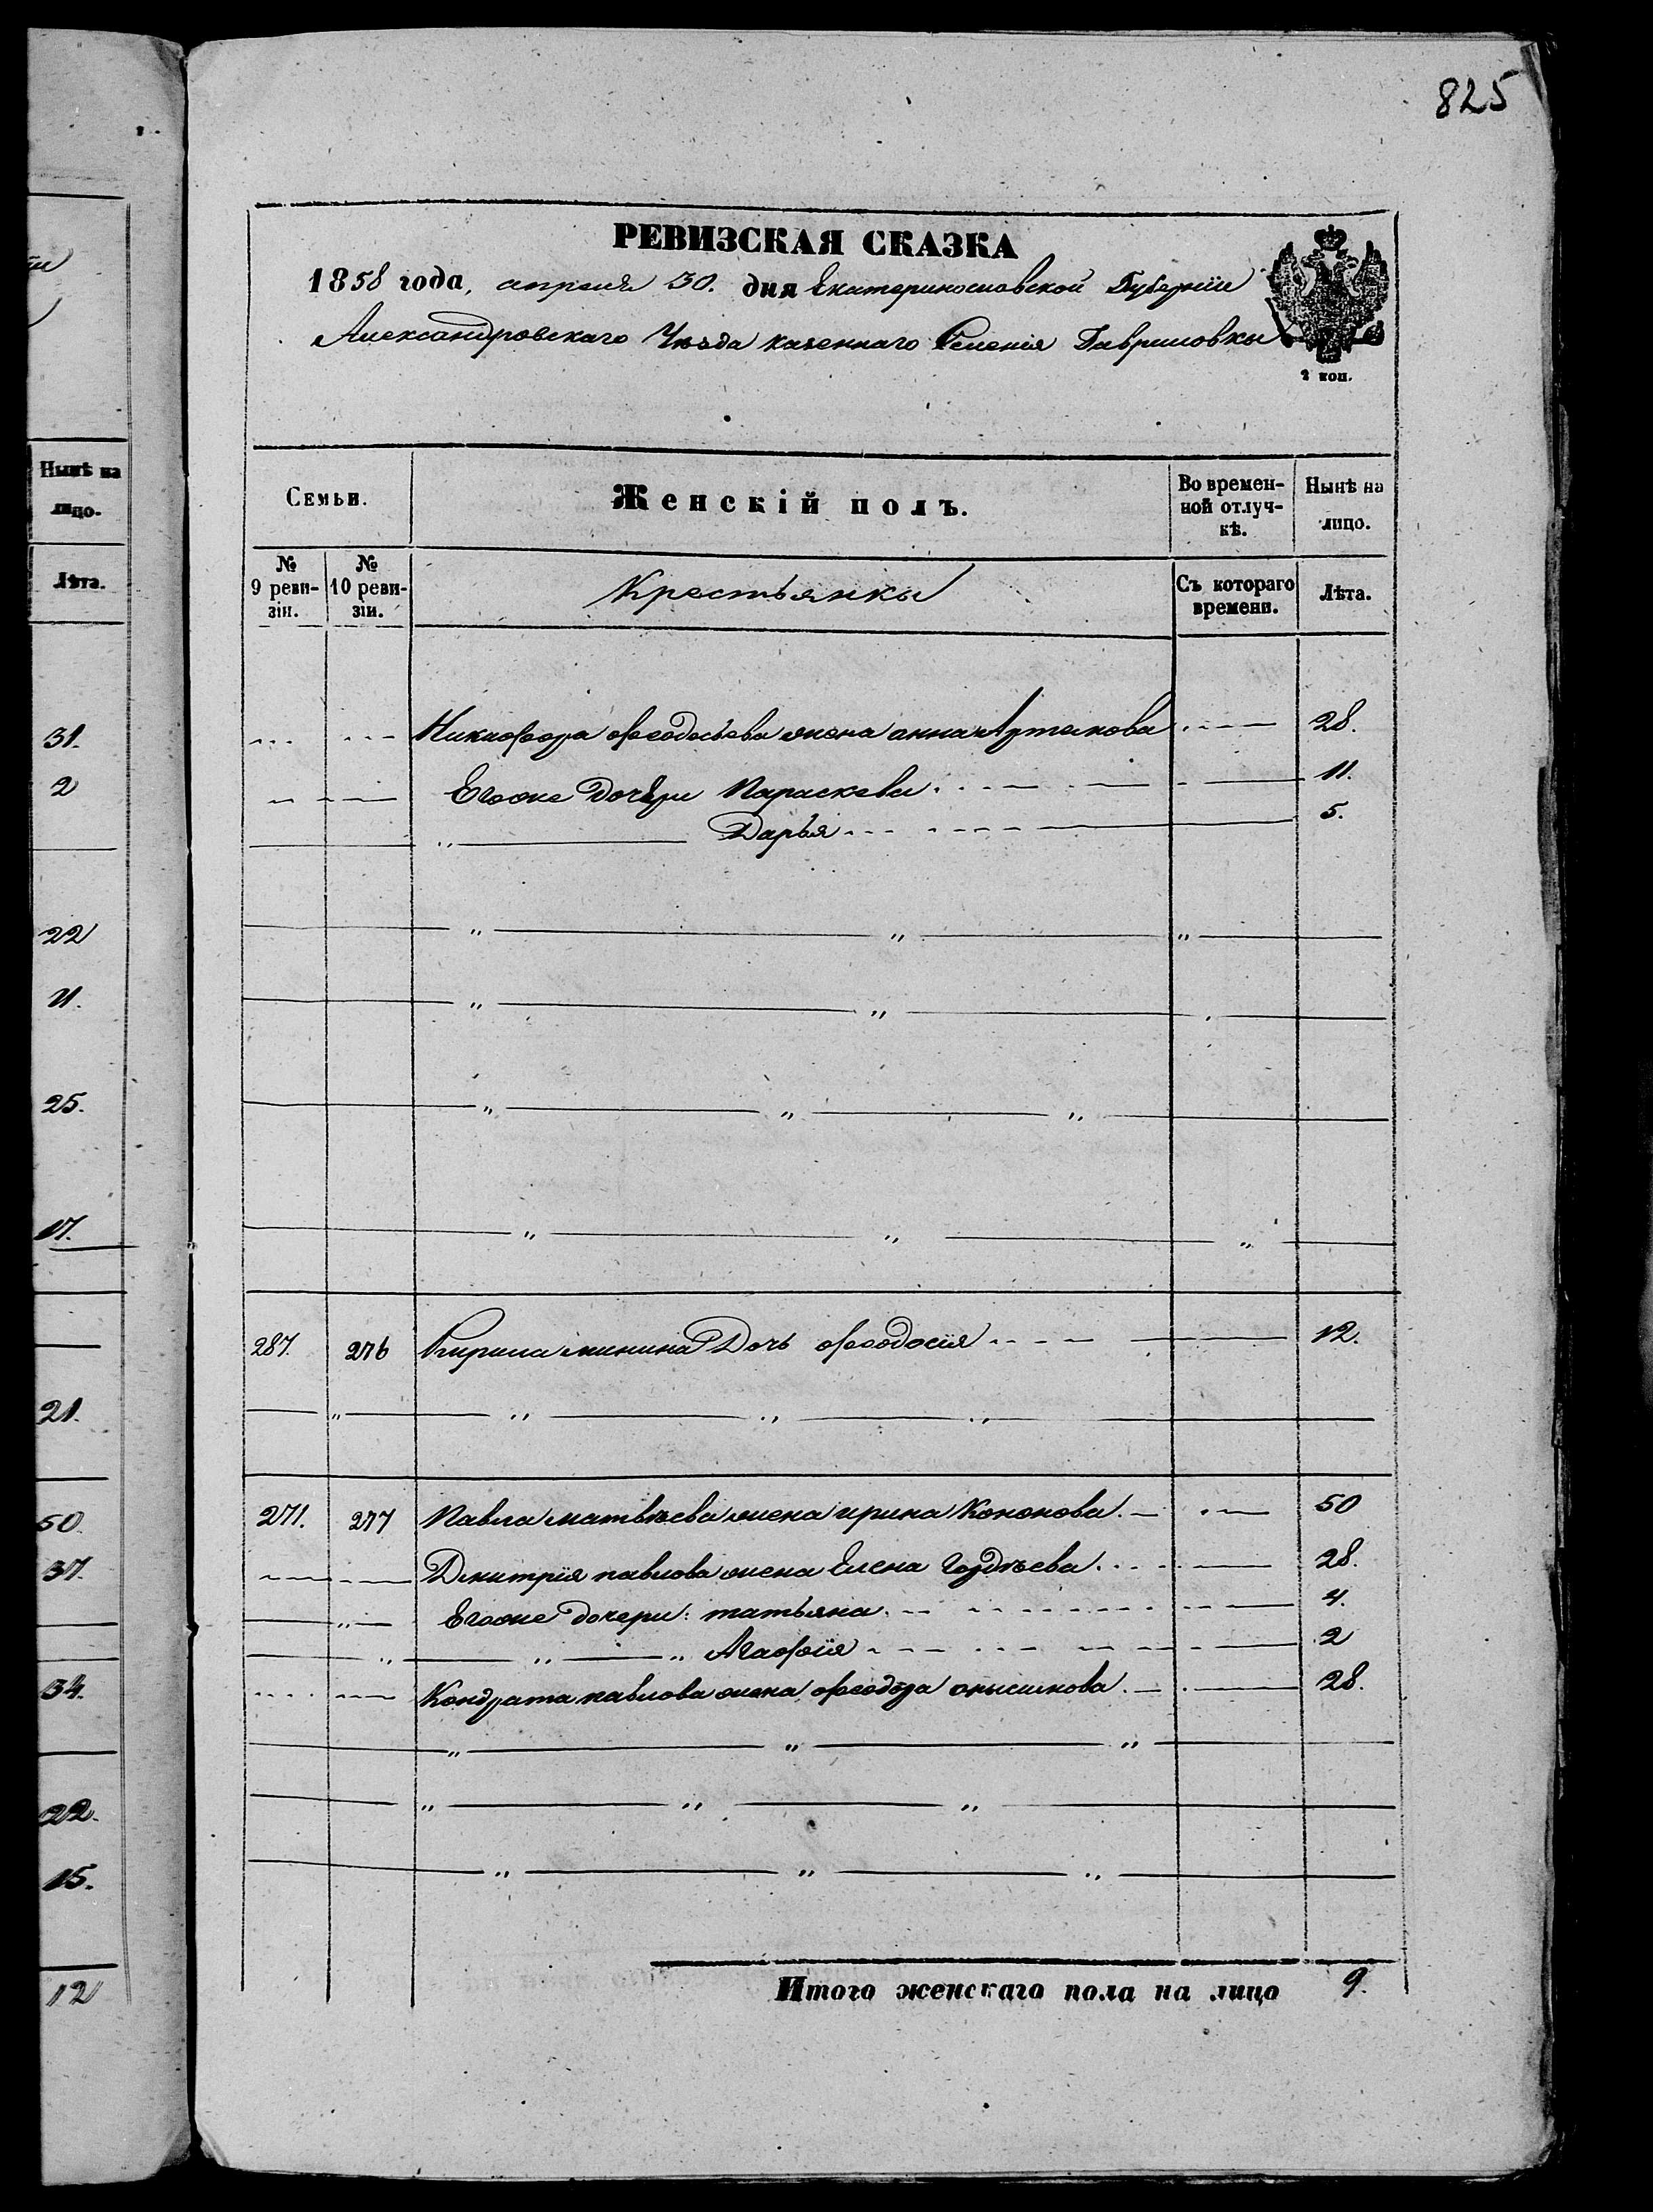 825
РЕВИЗСКАЯ СКАЗКА
1858 года, апреля 30. дня Екатеринославской Губерніи
Александровскаго Уѣзда казеннаго Селенія Гавриловки
2 коп.
Нынѣ на
лицо.
Лѣта.
31.
2
22
21.
25.
17.
21.
50.
37.
34.
22.
15.
12
Семьи.
Женскій полъ.
Во времен-
ной отлуч-
кѣ.
Нынѣ на
лицо.
№
9 реви-
зіи.
№
10 реви-
зіи.
Крестьянки
Съ котораго
времени.
Лѣта.
Никифора Феодосьева жена анна Артемова 28.
Егоже дочери Параскева 11.
" Дарья 5.
287. 276 Кирила минина Дочь Феодосія 12.
271. 277 Павла матвѣева жена ирина Кононова. 50
Дмитрія павлова жена Елена Гордѣева. 28.
Егоже дочери: татьяна. 4.
" " " Агафія 2
Кондрата павлова жена Феодора онысимова. 28.
Итого женскаго пола на лицо 9.